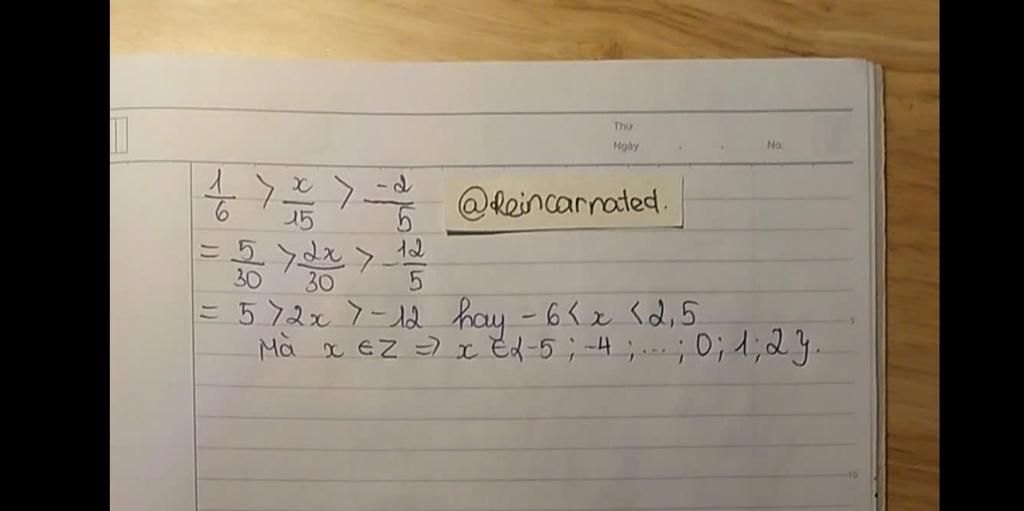 Thứ
Ngày . . No.
1/6 > x/15 > -2/5
@Reincarnated.
= 5/30 > 2x/30 > -12/5
= 5 > 2x > -12 hay -6 < x < 2,5
Mà x ∈ Z => x ∈ {-5 ; -4 ; ... ; 0 ; 1 ; 2}.
5
10